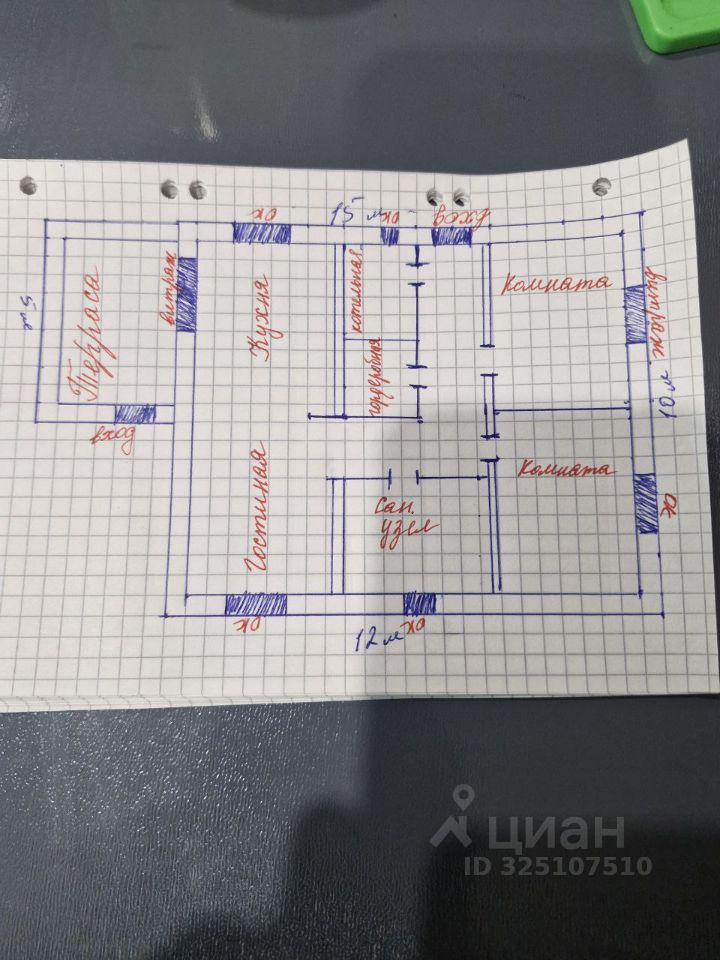 ок
15 м
ок
вход
5 м
Терраса
витраж
Кухня
котельная
гордеробная
Комната
витраж
10 м
вход
Гостиная
Сан.
узел
Комната
ок
ок
12 м
ок
циан
ID 325107510